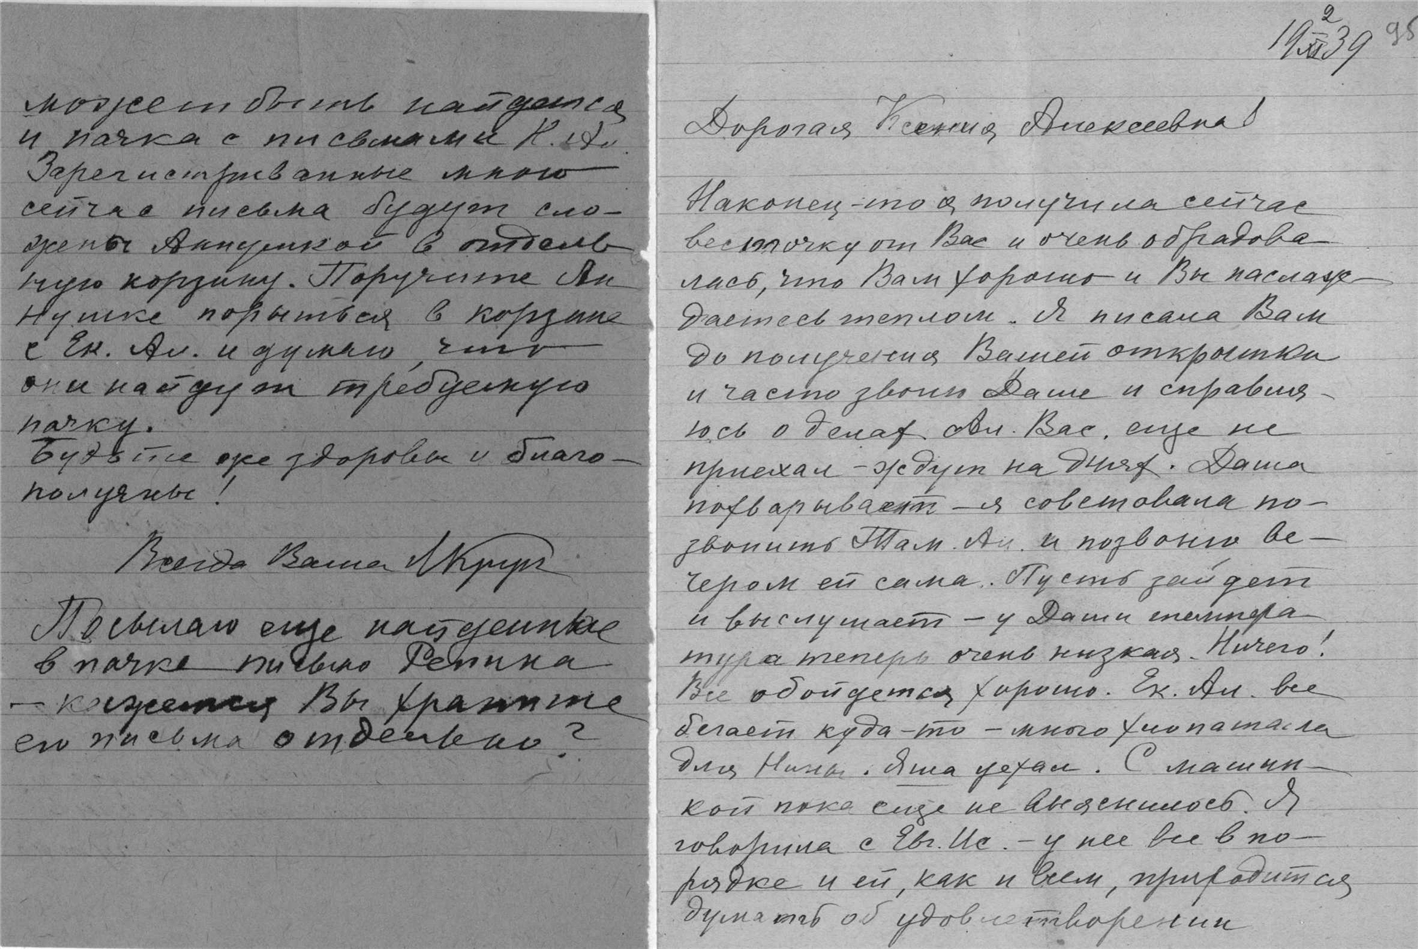 может быть найдется
и пачка с письмами К. Ал.
Зарегистриванные мною
сейчас письма будут сло-
жены Аннушкой в отдель
ную корзину. Поручите Ан
нушке порыться в корзине
с Ек. Ал. и думаю, что
они найдут требуемую
пачку.
Будьте же здоровы и благо-
получны!
Всегда Ваша
Посылаю еще найденные
в пачке письмо Репина
– кажется Вы храните
его письма отдельно?
19 2/XI 39
95
Дорогая Ксения Алексеевна!
Наконец-то я получила сейчас
весточку от Вас и очень обрадова-
лась, что Вам хорошо и Вы наслаж-
даетесь теплом. Я писала Вам
до получения Вашей открытки
и часто звоню Даше и справля-
юсь о делах. Ал. Вас. еще не
приехал – ждут на днях. Даша
похварывает – я советовала по-
звонить Там. Ал. и позвоню ве-
чером ей сама. Пусть зайдет
и выслушает – у Даши темпера
тура теперь очень низкая. Ничего!
Все обойдется хорошо. Ек. Ал. все
бегает куда-то – много хлопатала
для Нины. Яша уехал. С машин-
кой пока еще не выяснилось. Я
говорила с Евг. Ис. – у нее все в по-
рядке и ей, как и всем, приходится
думать об удовлетворении